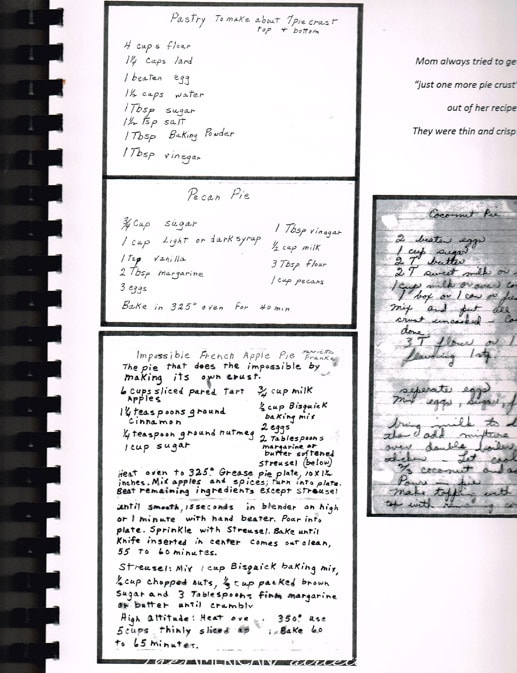 Pastry To make about 7 pie crust
top + bottom
4 cups flour
1¼ cups lard
1 beaten egg
1½ cups water
1 Tbsp sugar
1½ tsp salt
1 Tbsp Baking Powder
1 Tbsp vinegar
Pecan Pie
¾ Cup sugar
1 cup Light or dark syrup
1 tsp vanilla
2 Tbsp margarine
3 eggs
1 Tbsp vinagar
½ cup milk
3 Tbsp flour
1 cup pecans
Bake in 325° oven for 40 min
Impossible French Apple Pie
The pie that does the impossible by
making its own crust.
6 cups sliced pared Tart
Apples
1¼ teaspoons ground
Cinnamon
¼ teaspoon ground nutmeg
1 cup sugar
¾ cup milk
½ cup Bisquick
baking mix
2 eggs
2 Tablespoons
margarine or
butter softened
Streusel (below)
Heat oven to 325° Grease pie plate, 10x1½
inches. Mix apples and spices; turn into plate.
Beat remaining ingredients except streusel
until smooth, 15 seconds in blender on high
or 1 minute with hand beater. Pour into
plate. Sprinkle with Streusel. Bake until
Knife inserted in center comes out clean,
55 to 60 minutes.
Streusel: Mix 1 cup Bisquick baking mix,
½ cup chopped nuts, ⅓ cup packed brown
sugar and 3 Tablespoons firm margarine
or butter until crumbly
High altitude: Heat ove 350° use
5 cups thinly sliced ap Bake 60
to 65 minutes.
Mom always tried to ge
"just one more pie crust"
out of her recipe
They were thin and crisp
Coconut Pie
2 beaten eggs
1 cup sugar
2 T butter
2 T sweet milk or
mix and put all
crust
done
3 T flour or
seperate eggs
Mix eggs, sugar,
bring milk to
then add mixture
double boiler
Let cool
⅔ coconut and
Make with